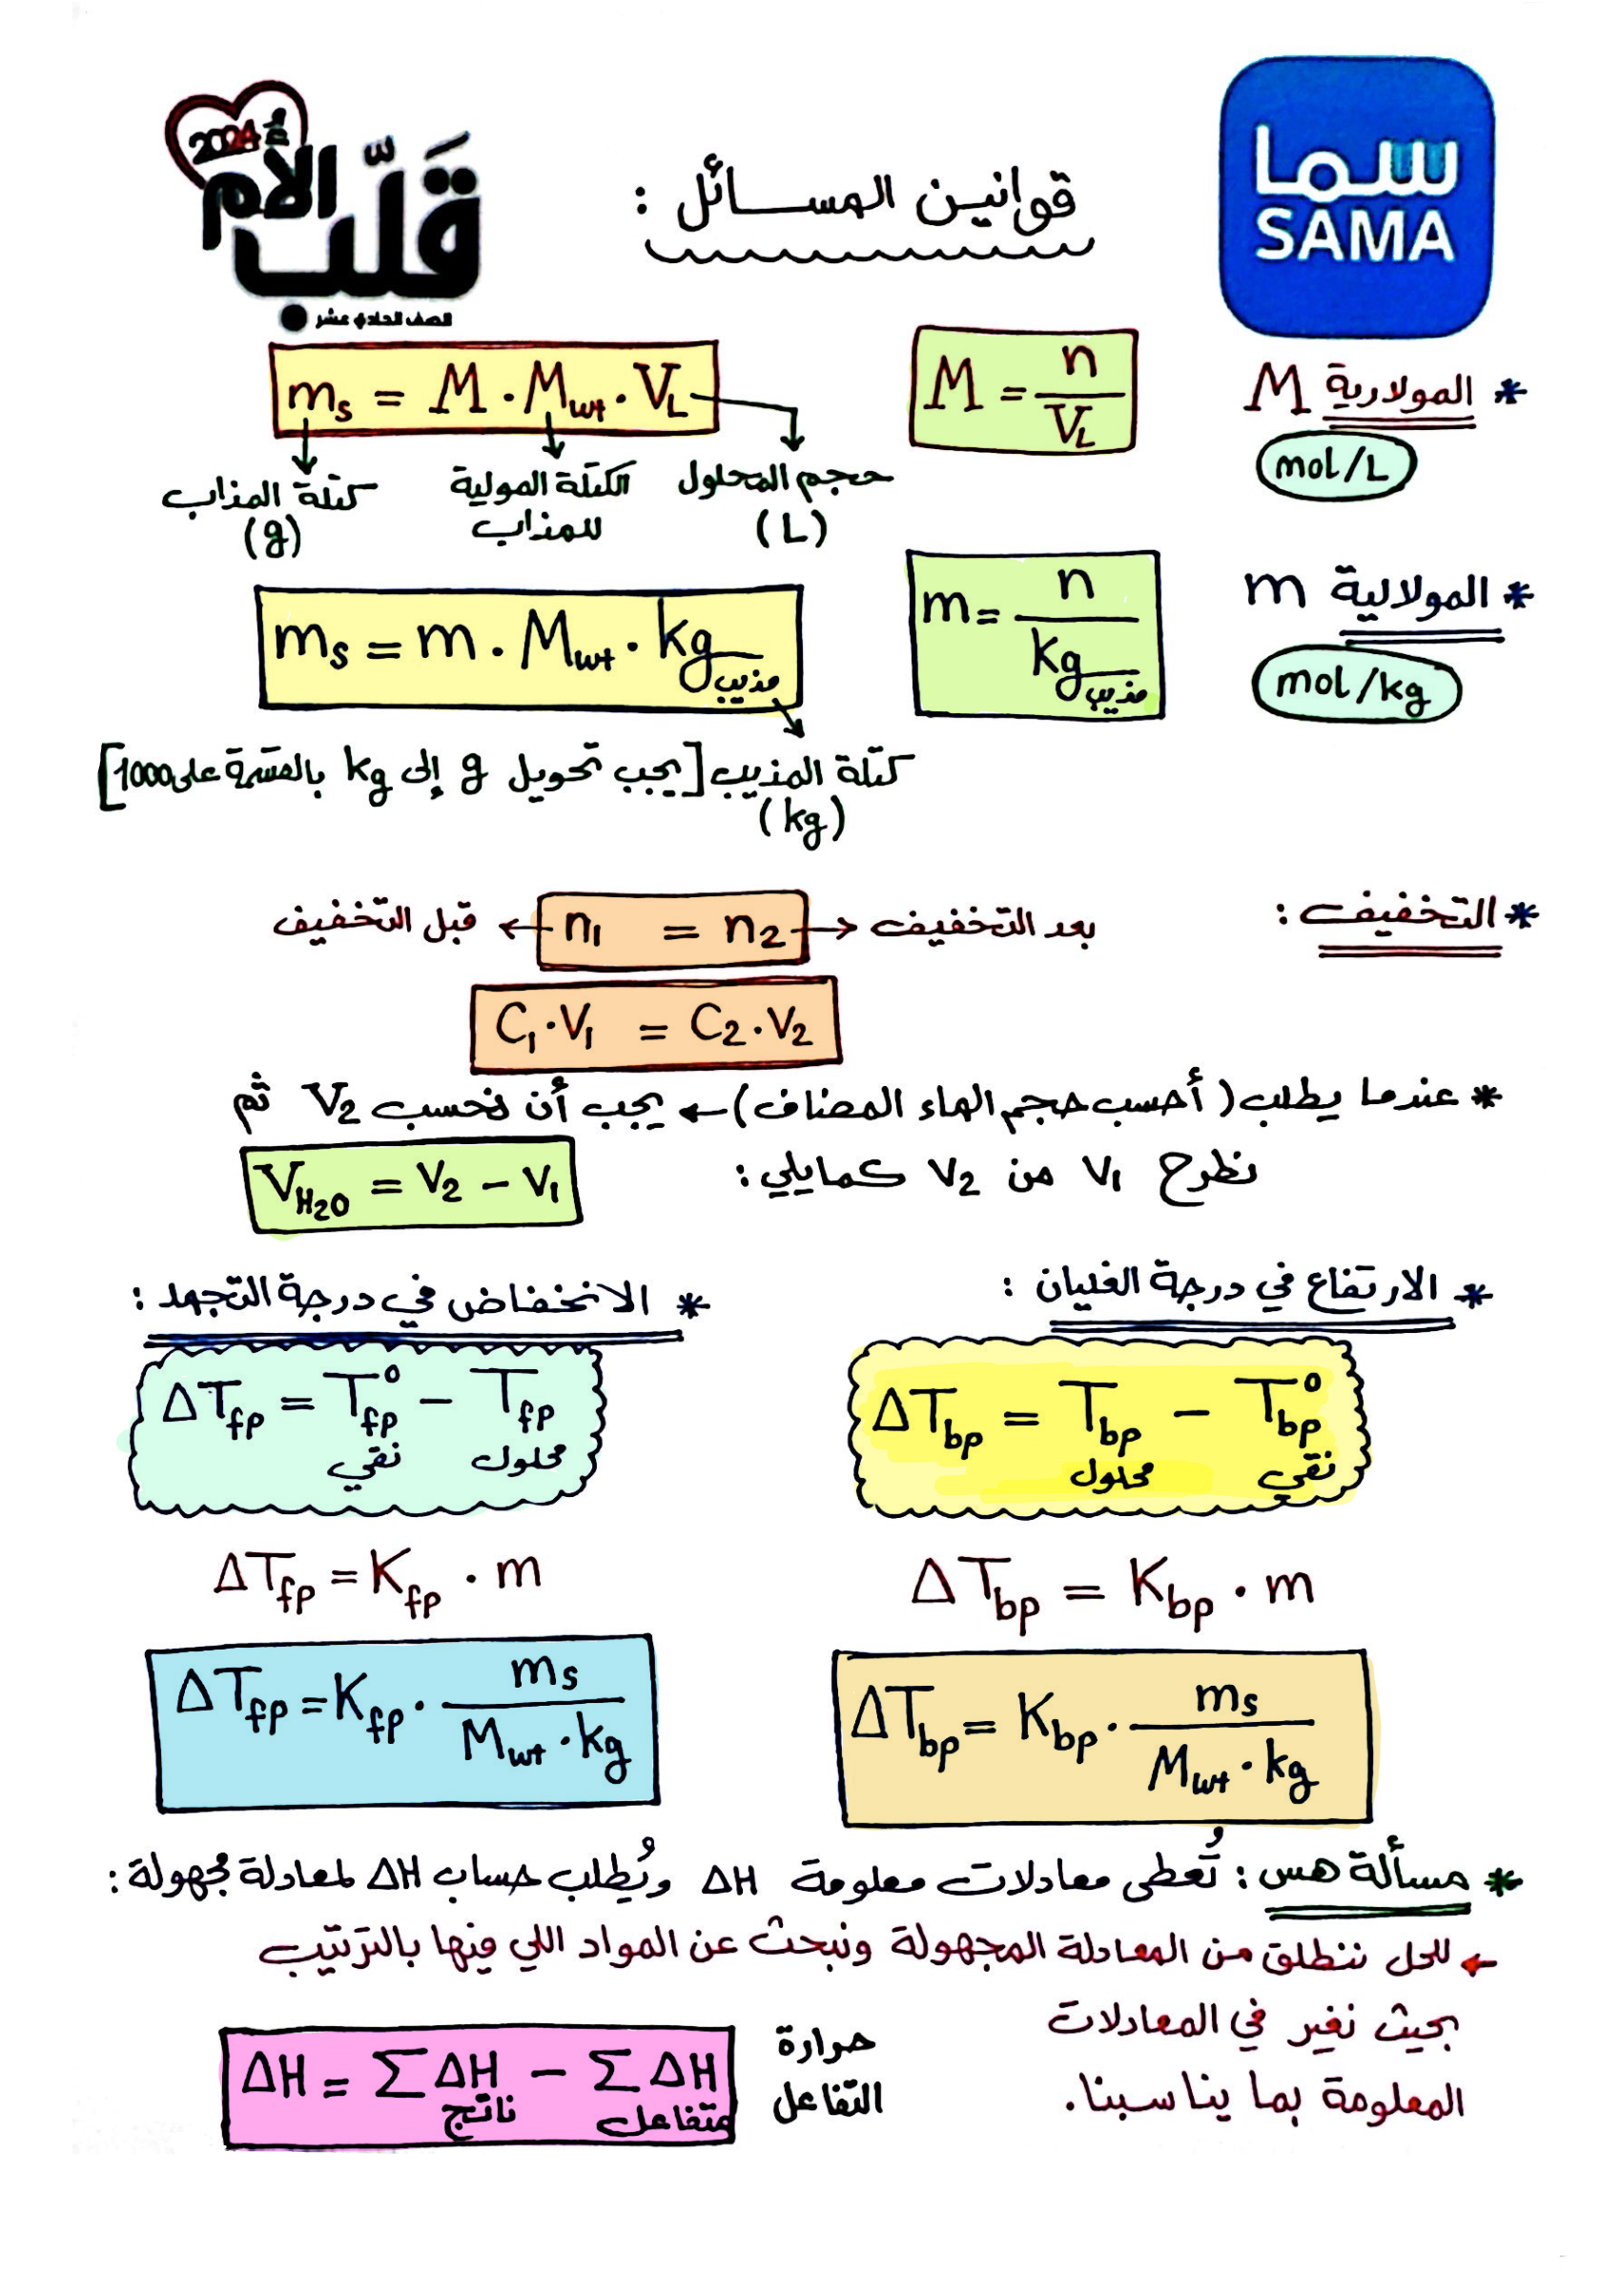 سما
SAMA
قوانين المسائل :
2024
قلب الأم
الصف الحادي عشر
* المولارية M
mol/L
M = n / V_L
m_s = M · M_wt · V_L
حجم المحلول (L)
الكتلة المولية للمذاب
كتلة المذاب (g)
* المولالية m
mol/kg
m = n / kg مذيب
m_s = m · M_wt · kg مذيب
كتلة المذيب [يجب تحويل g إلى kg بالقسمة على 1000]
(kg)
* التخفيف :
قبل التخفيف ← n₁ = n₂ → بعد التخفيف
C₁·V₁ = C₂·V₂
* عندما يطلب (أحسب حجم الماء المضاف) ← يجب أن نحسب V₂ ثم
نطرح V₁ من V₂ كمايلي :
V_H₂O = V₂ − V₁
* الارتفاع في درجة الغليان :
ΔT_bp = T_bp محلول − T°_bp نقي
ΔT_bp = K_bp · m
ΔT_bp = K_bp · m_s / M_wt · kg
* الانخفاض في درجة التجمد :
ΔT_fp = T°_fp نقي − T_fp محلول
ΔT_fp = K_fp · m
ΔT_fp = K_fp · m_s / M_wt · kg
* مسألة هس : تُعطى معادلات معلومة ΔH ويُطلب حساب ΔH لمعادلة مجهولة :
← للحل ننطلق من المعادلة المجهولة ونبحث عن المواد اللي فيها بالترتيب
بحيث نغير في المعادلات
المعلومة بما يناسبنا.
حرارة التفاعل
ΔH = Σ ΔH ناتج − Σ ΔH متفاعل